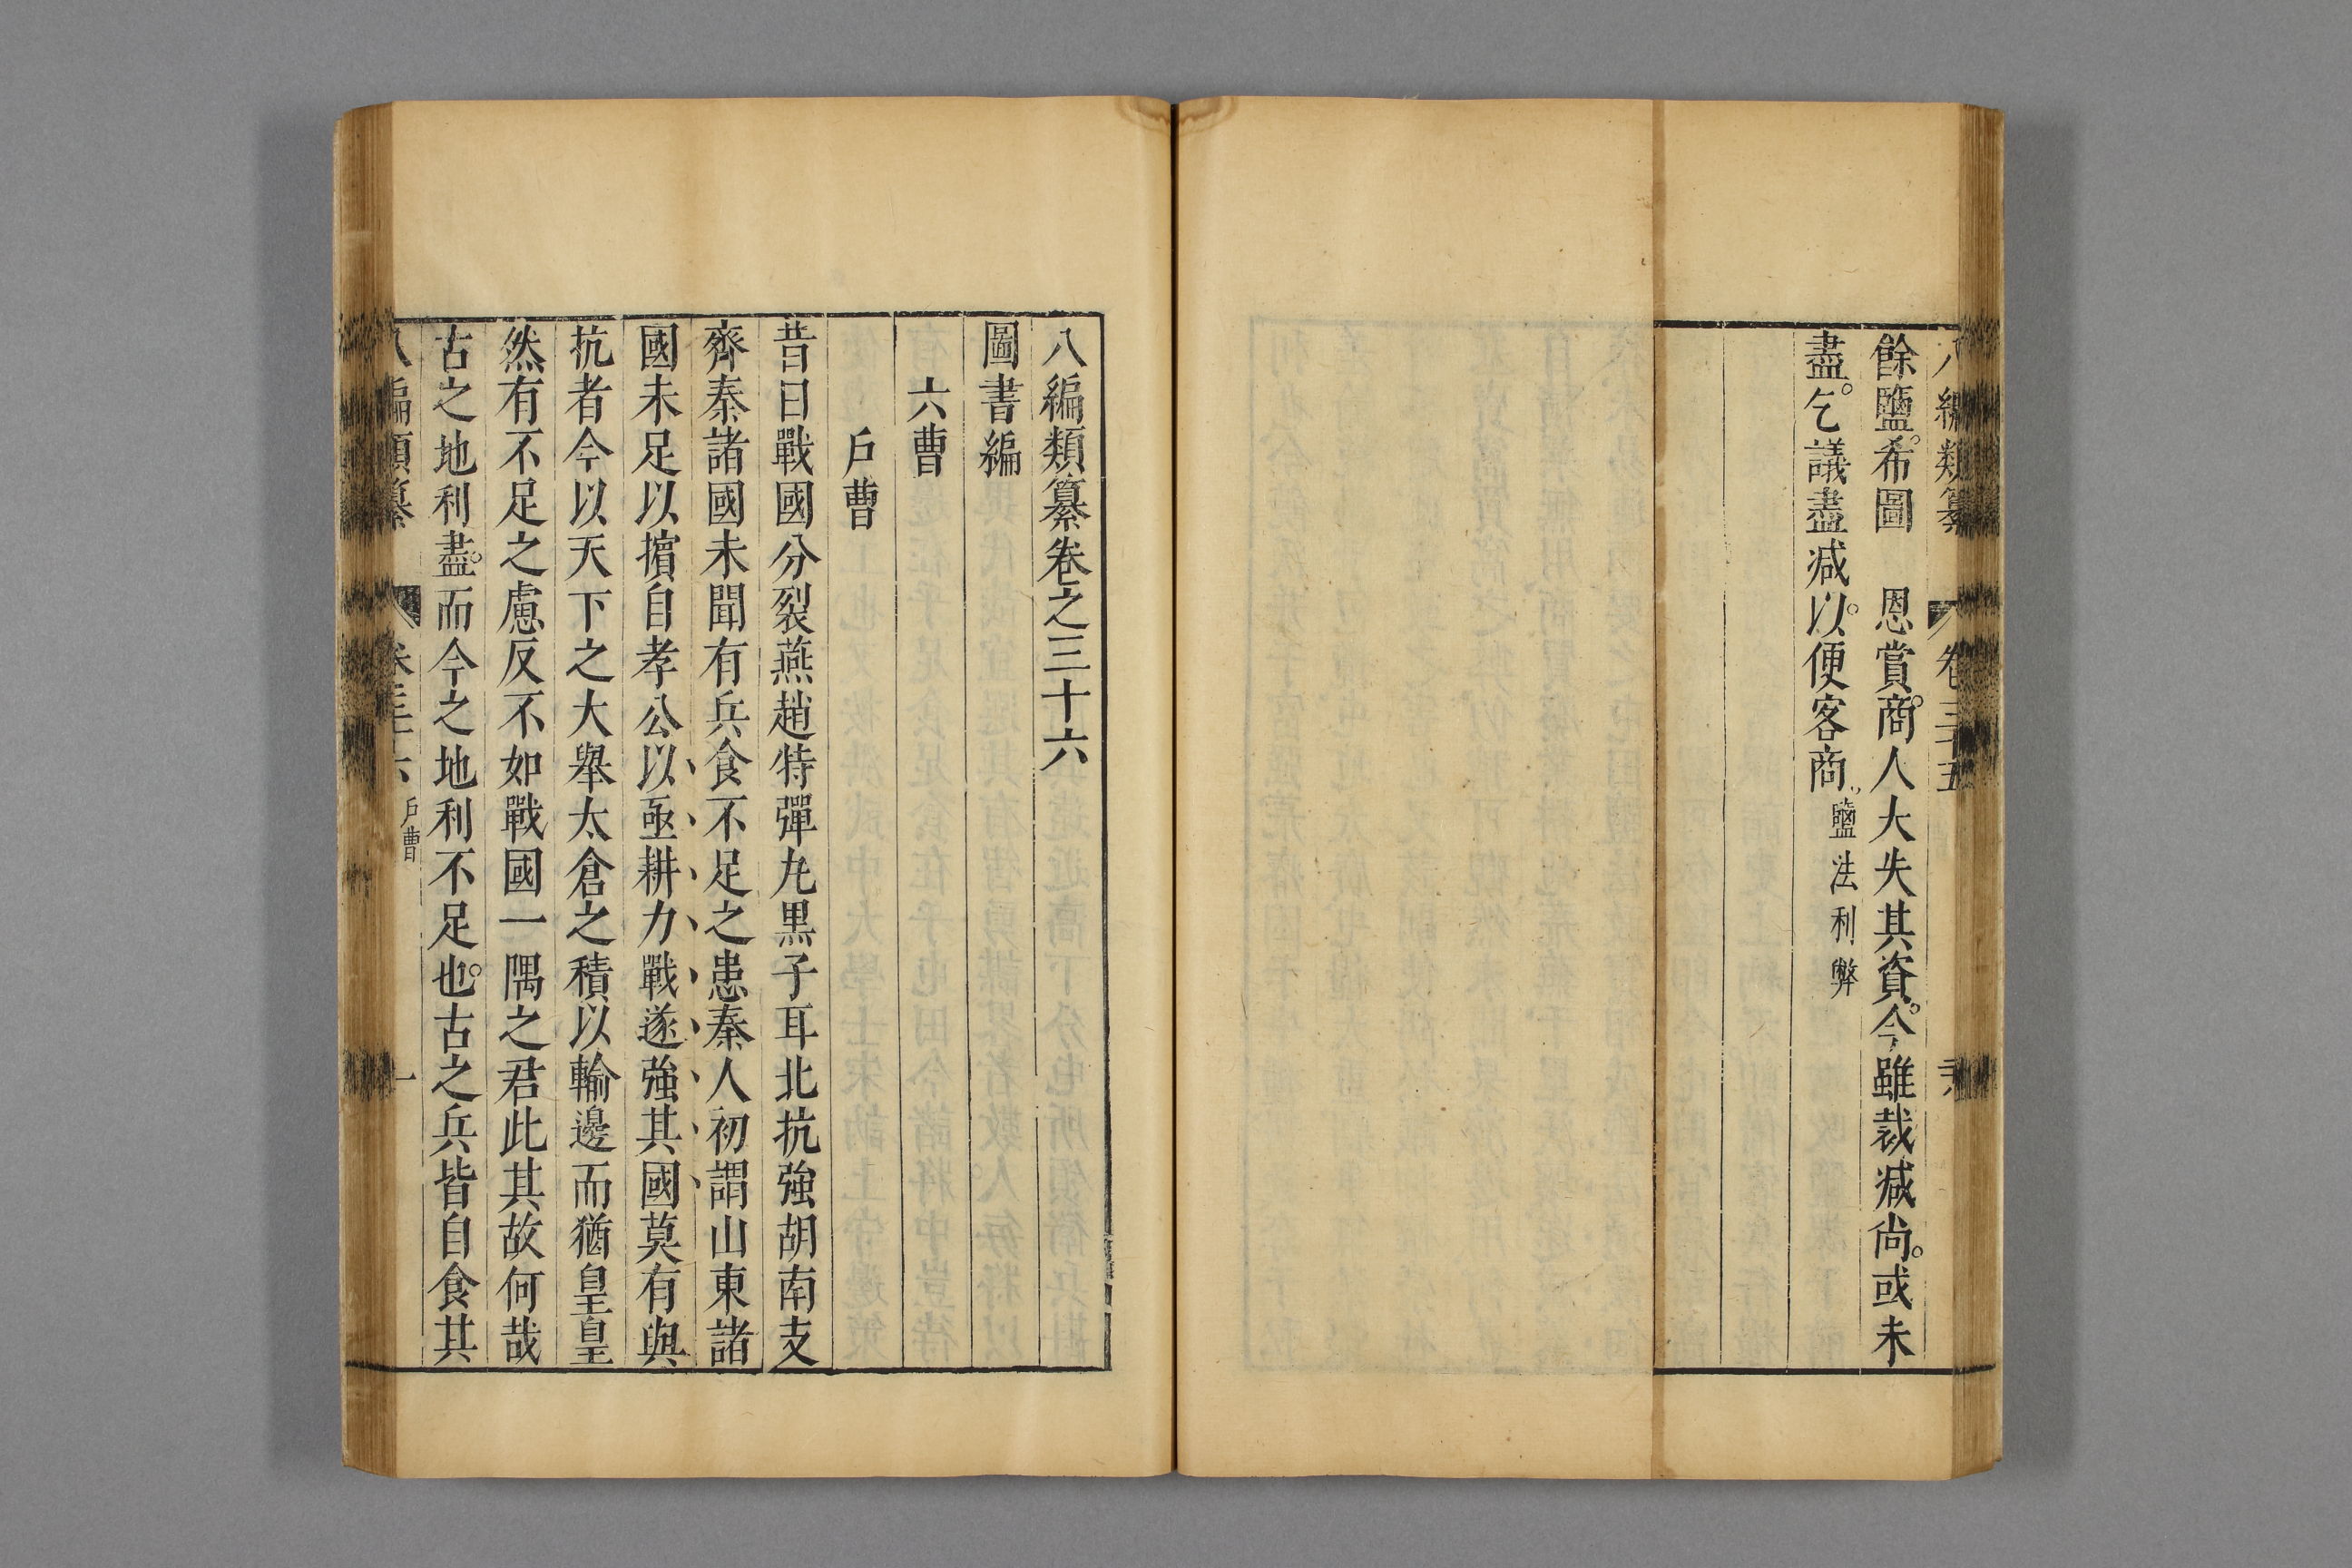 八編類纂 卷三十五
餘鹽。希圖　恩賞。商人大失其資。今雖裁减尚。或未
盡。乞議盡减。以便客商。鹽法利弊
八編類纂卷之三十六
圖書編
六曹
戶曹
昔日戰國分裂燕趙特彈丸黑子耳北抗強胡南支
齊秦諸國未聞有兵食不足之患秦人初謂山東諸
國未足以擯自孝公以亟耕力戰遂強其國莫有與
抗者今以天下之大舉太倉之積以輸邊而猶皇皇
然有不足之慮反不如戰國一隅之君此其故何哉
古之地利盡。而今之地利不足也。古之兵皆自食其
八編類纂 卷三十六 戶曹 一